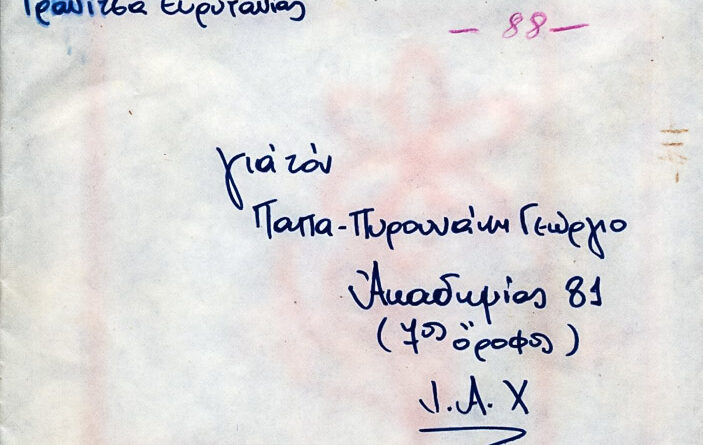 Γρανίτσα Ευρυτανίας
— 88 —
γιά τόν
Παπα-Πυρουνάκη Γεώργιο
Ἀκαδημίας 81
(7ος ὄροφος)
Ι.Α.Χ